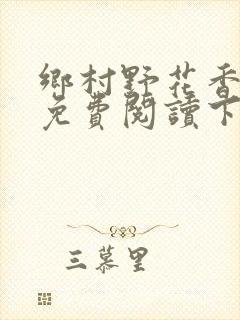 鄉村野花香
免費閱讀下
三慕里